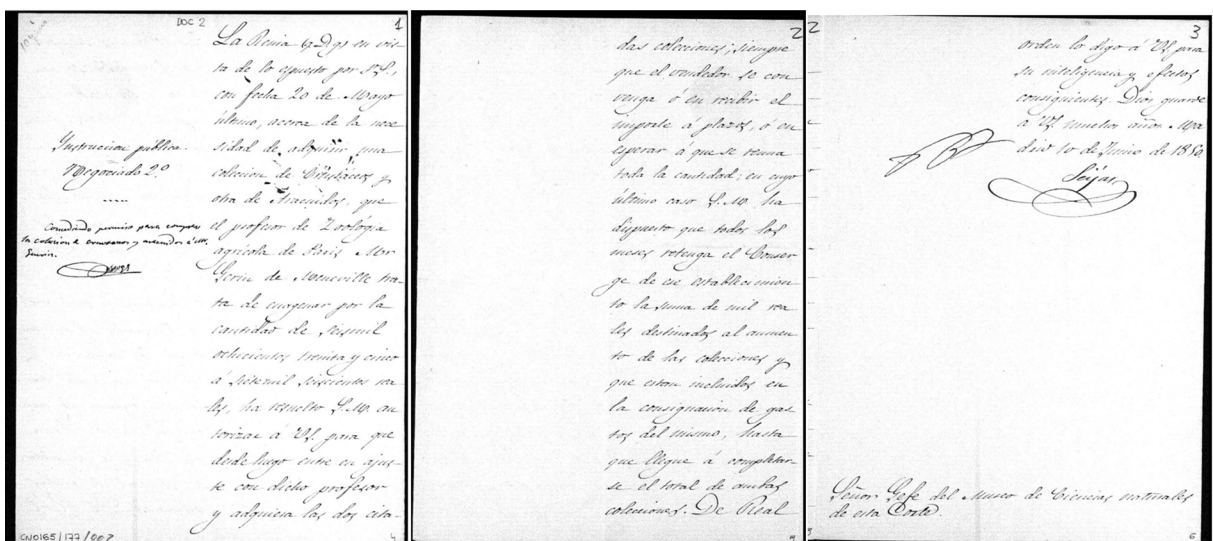 DOC 2
1
Instruccion pública.
Negociado 2º
Concediendo permiso para comprar
la colecion de crustaceos y aracnidos á Mr.
Guerin.
La Reina (q.D.g.) en vis-
ta de lo espuesto por V.S.,
con fecha 20 de Mayo
último, acerca de la nece
sidad de adquirir una
coleccion de Crustáceos y
otra de Aracnidos, que
el profesor de Zoología
agrícola de Paris Mr
Gerin de Meneville tra-
ta de enagenar por la
cantidad de seismil
ochocientos treinta y cinco
á sietemil seiscientos rea
les, ha resuelto S.M. au
torizar á VS. para que
desde luego entre en ajus-
te con dicho profesor
y adquiera las dos cita-
CN0165/177/002
4
2
das colecciones; siempre
que el vendedor se con
venga ó en recibir el
importe á plazos, ó en
esperar á que se reuna
toda la cantidad; en cuyo
último caso S.M. ha
dispuesto que todos los
meses retenga el Conser
ge de ese establecimien
to la suma de mil rea
les destinados al aumen
to de las colecciones y
que estan incluidos en
la consignacion de gas
tos del mismo, hasta
que llegue á completar-
se el total de ambas
colecciones. De Real
2
3
orden lo digo á VS. para
su inteligencia y efectos
consiguientes. Dios guarde
á VS. muchos años. Ma
drid 10 de Junio de 1850.
Seijas
Señor Gefe del Museo de Ciencias naturales
de esta Corte.
6